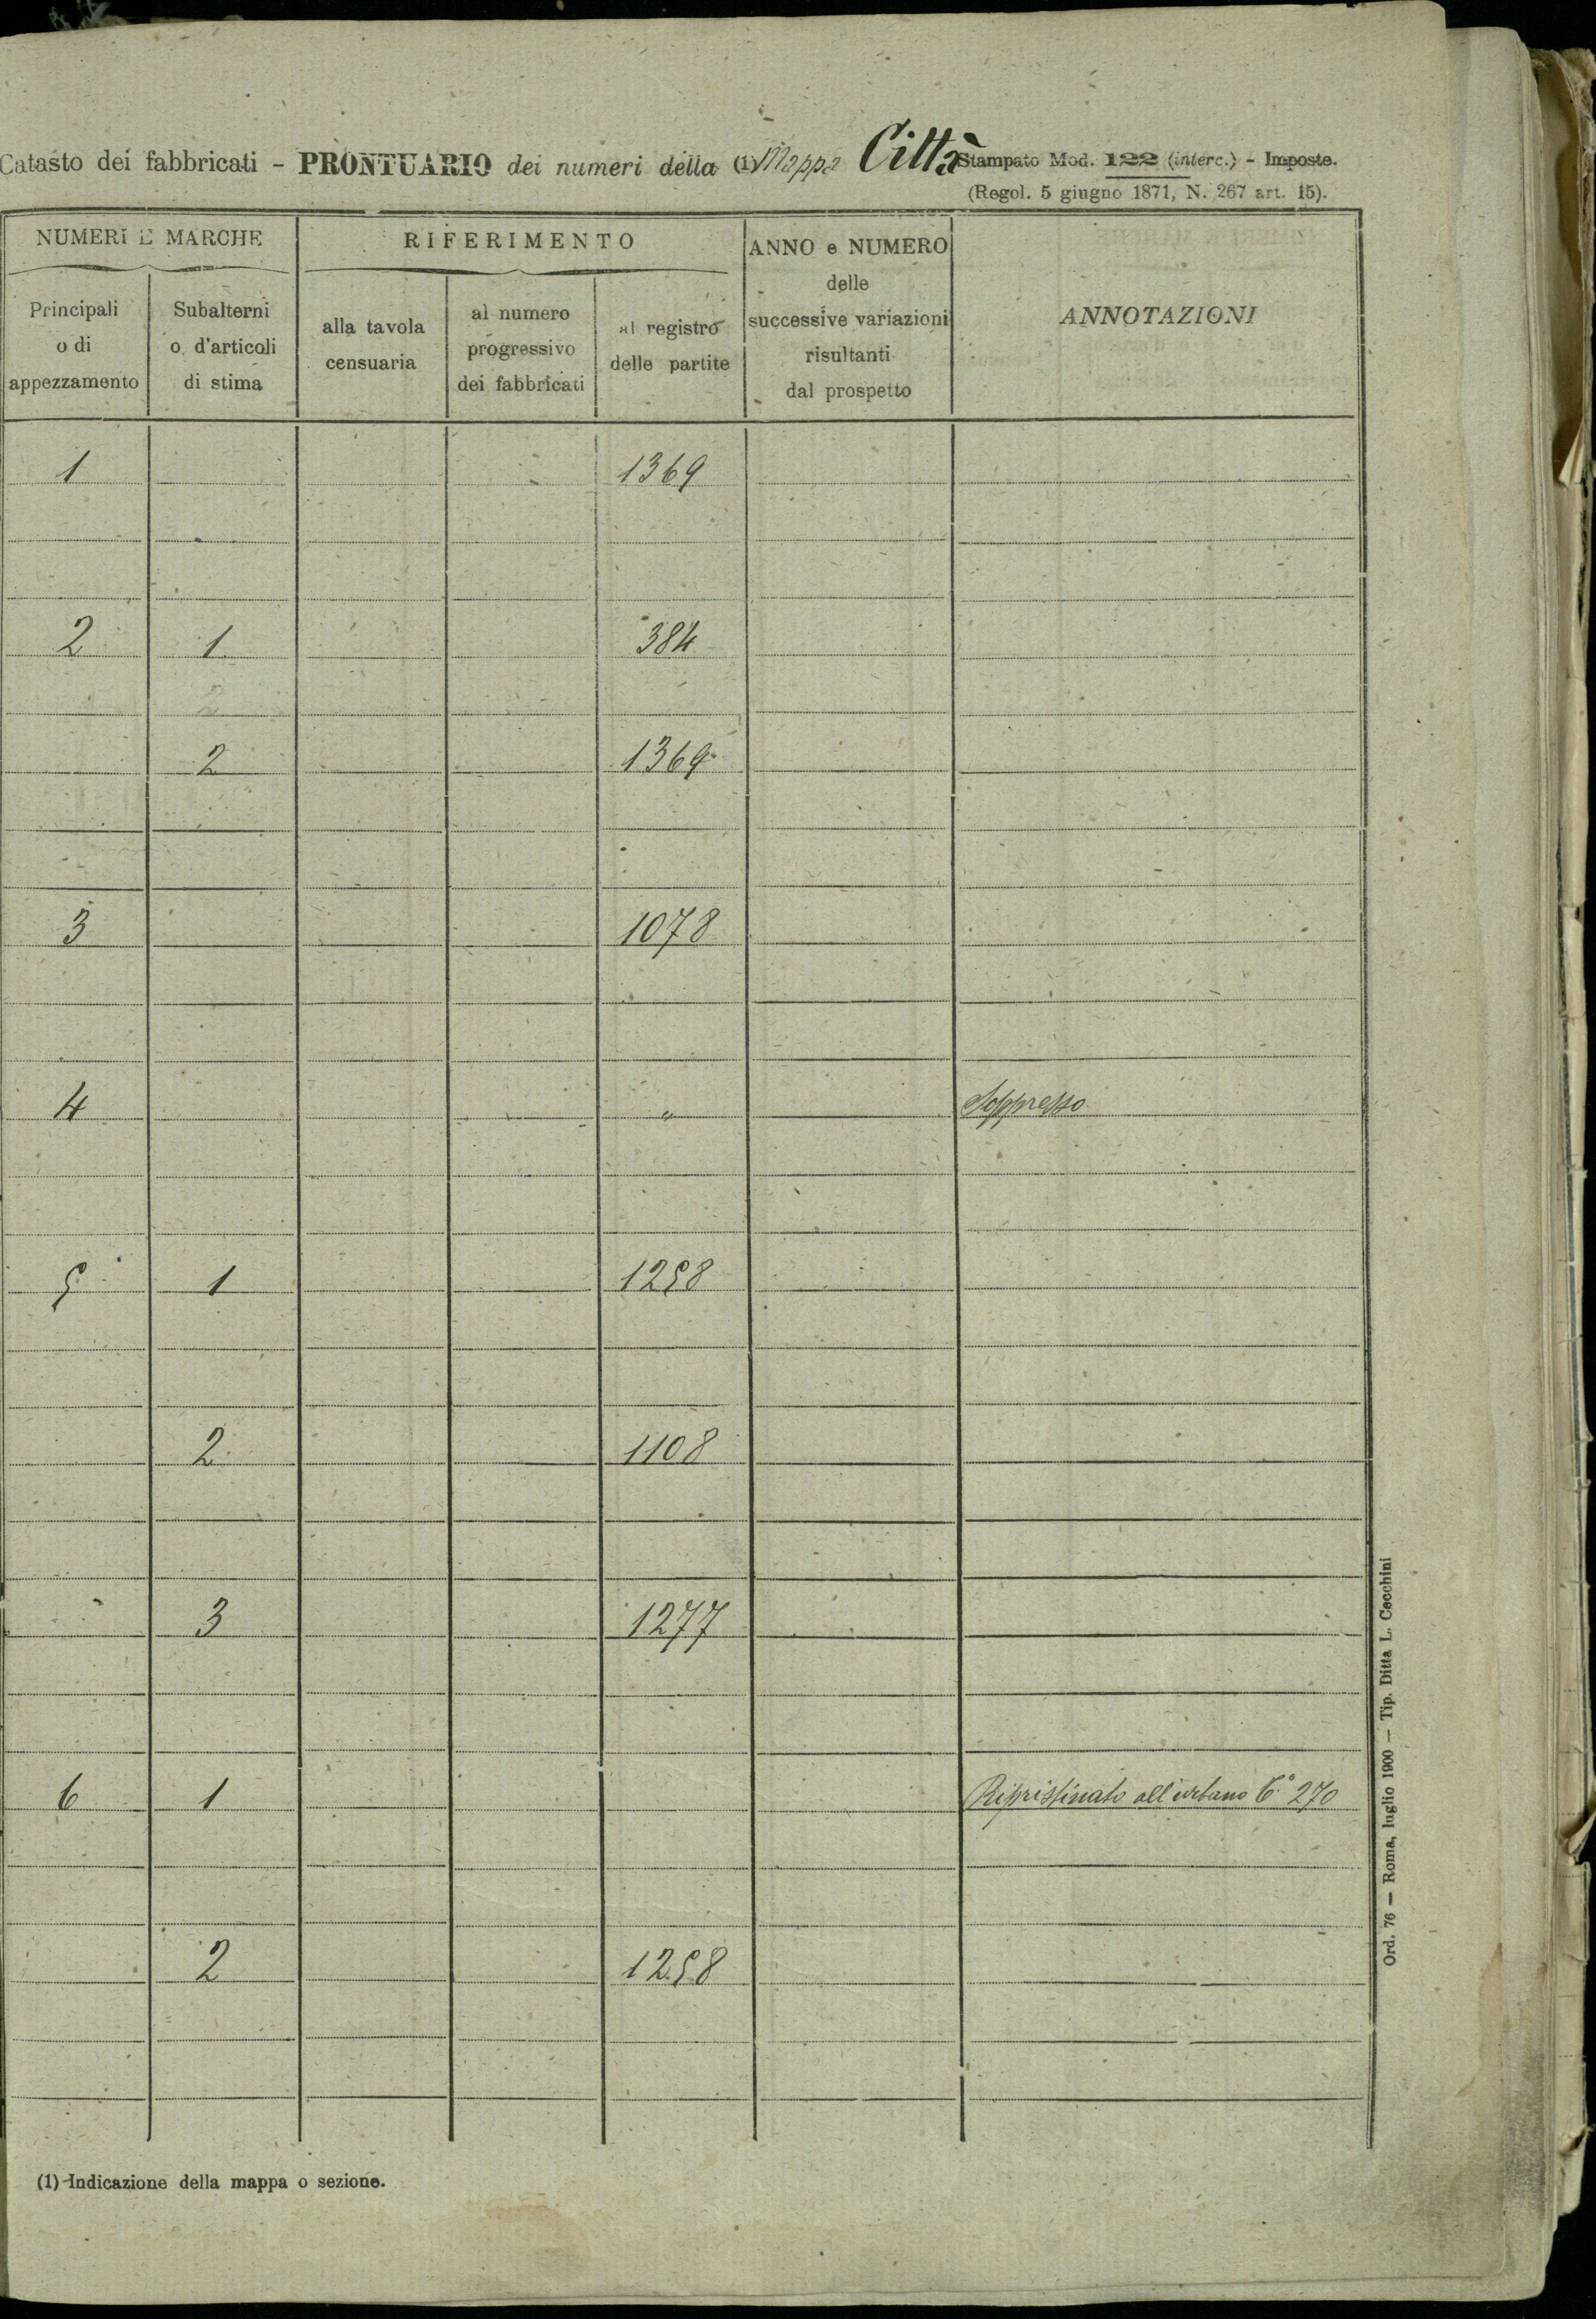 Catasto dei fabbricati - PRONTUARIO dei numeri della (1) Mappa Città Stampato Mod. 122 (interc.) - Imposte.
(Regol. 5 giugno 1871, N. 267 art. 15).
NUMERI E MARCHE RIFERIMENTO ANNO e NUMERO delle successive variazioni risultanti dal prospetto ANNOTAZIONI
Principali o di appezzamento Subalterni o d'articoli di stima alla tavola censuaria al numero progressivo dei fabbricati al registro delle partite
1 1369
2 1 384
2
2 1369
3 1078
4 " Soppresso
5 1 1258
2 1108
3 1277
6 1 Ripristinato all'urbano 270
2 1258
(1) Indicazione della mappa o sezione.
Ord. 76 — Roma, luglio 1900 — Tip. Ditta L. Cecchini